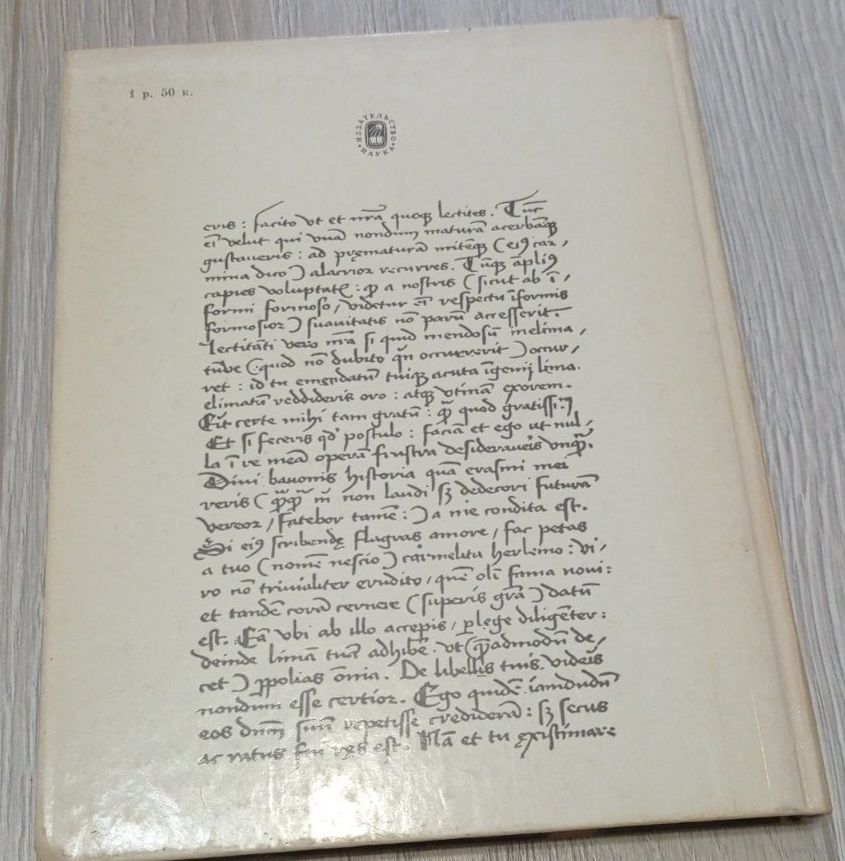 1 р. 50 к.
ИЗДАТЕЛЬСТВО
НАУКА
eris : facito vt et nr̄ā quoqʒ lectites. Tūc
eī velut qui vuā nondum maturā acerbāqʒ
gustaveris : ad pręmaturā mitēqʒ (eiꝰ car,
mina dico) alacrior recurres. Tūqʒ āpliꝰ
capies voluptatē : a nostris (sicut ab ī,
formi formoso, videtur eī respectu īformis
formosior) suavitatis nō parū accesserit.
lectitāti vero nr̄a si quid mendosū
(quod nō dubito qn̄) occur,
ret : id tu emendatū tuiqʒ acuta īgenij lima.
elimatū reddideris oro : atqʒ vtinā exorem.
Erit certe mihi tam gratū : quod
Et si feceris qd' postulo : faciā et ego ut nul,
la ī re meā operā frustra desideraveris
Divi bavonis historia quā erasmi
reris ( non laudi sʒ dedecori futurā
vereor, fatebor tamē :) a me condita est.
Si eiꝰ scribendę flagras amore, fac petas
a tuo (nomē nescio) carmelita herlemo : vi,
ro nō trivialiter erudito, quē olī fama novi :
et tandē corā cernere (superis grā) datū
est. Eā vbi ab illo accepis, ꝑlege diligēter :
deinde limā tuā adhibē. vt (quēadmodū de,
cet) ꝓpolias ōnia. De libellis tuis videris
nondum esse certior. Ego quidē iamdudū
eos repetisse crediderā : sʒ secus
ac ratus est. Nā et tu existimare